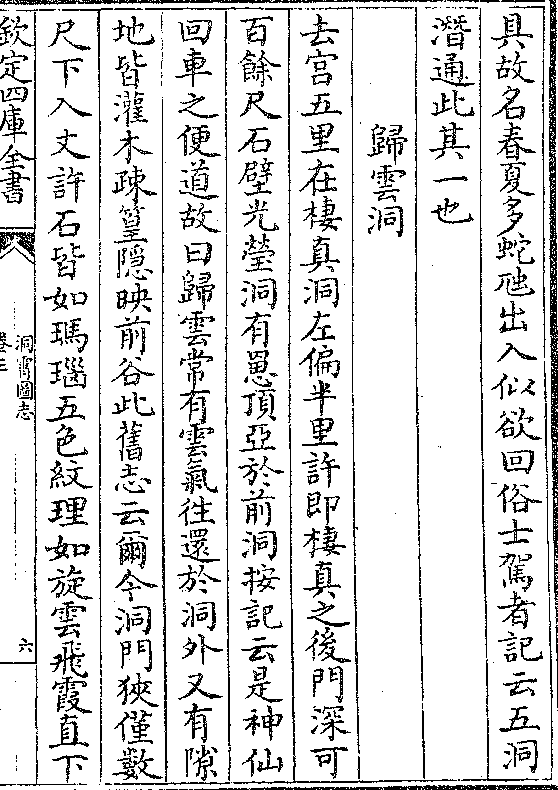 具故名春夏多蛇虺出入似欲回俗士駕者記云五洞
潛通此其一也
歸雲洞
去宫五里在棲真洞左偏半里許即棲真之後門深可
百餘尺石壁光瑩洞有罳頂亞於前洞按記云是神仙
回車之便道故曰歸雲常有雲氣往還於洞外又有隙
地皆灌木疎篁隠映前谷此舊志云爾今洞門狹僅數
尺下入丈許石皆如瑪瑙五色紋理如旋雲飛霞直下
欽定四庫全書
洞霄圖志
卷三
六